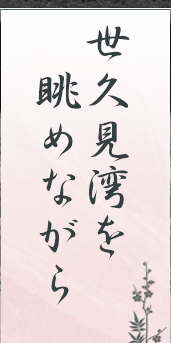 世久見湾を
眺めながら